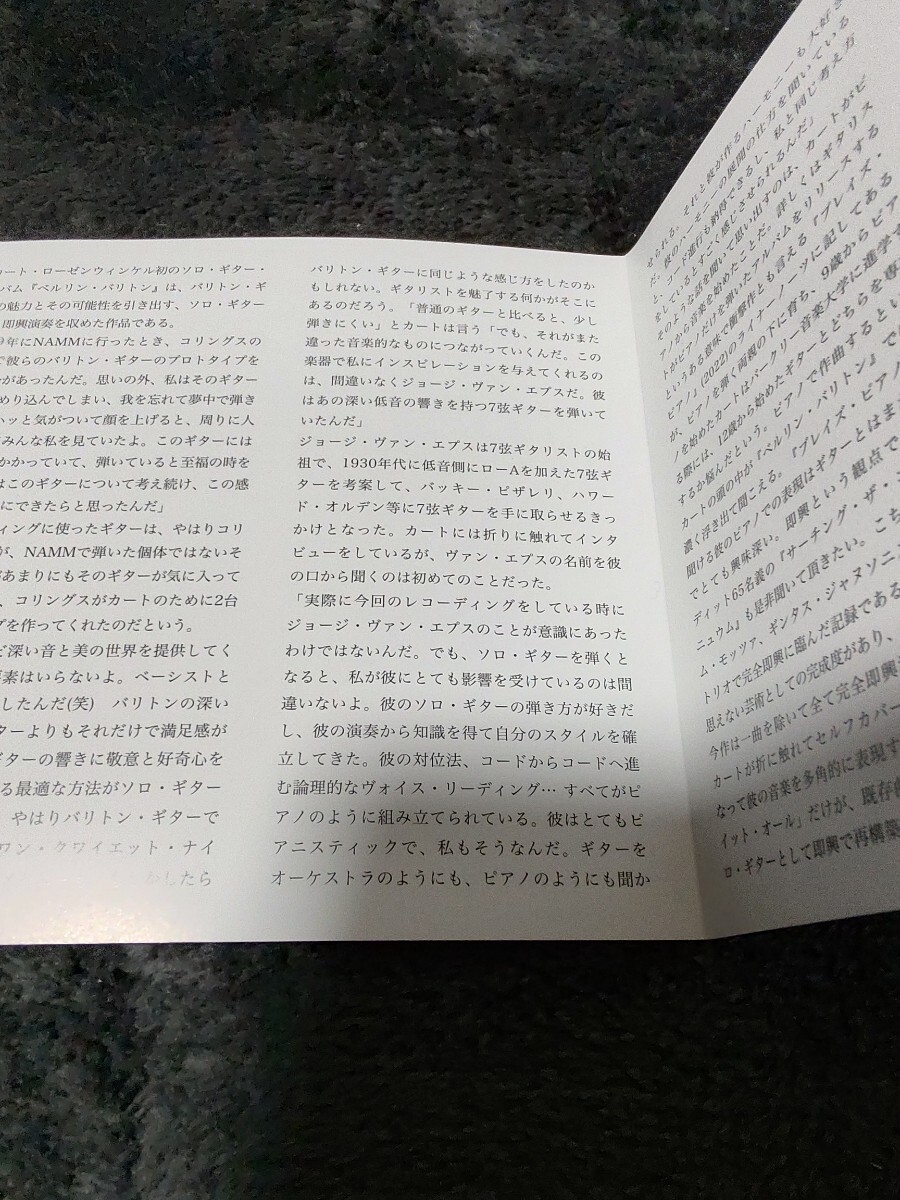 ート・ローゼンウィンケル初のソロ・ギター・
バム『ベルリン・バリトン』は、バリトン・ギ
の魅力とその可能性を引き出す、ソロ・ギター
即興演奏を収めた作品である。
9年にNAMMに行ったとき、コリングスの
で彼らのバリトン・ギターのプロトタイプを
があったんだ。思いの外、私はそのギター
めり込んでしまい、我を忘れて夢中で弾き
ハッと気がついて顔を上げると、周りに人
みんな私を見ていたよ。このギターには
かかっていて、弾いていると至福の時を
はこのギターについて考え続け、この感
にできたらと思ったんだ」
ィングに使ったギターは、やはりコリ
が、NAMMで弾いた個体ではないそ
があまりにもそのギターが気に入って
、コリングスがカートのために2台
グを作ってくれたのだという。
ど深い音と美の世界を提供してく
素はいらないよ。ベーシストと
したんだ(笑) バリトンの深い
ターよりもそれだけで満足感が
ギターの響きに敬意と好奇心を
る最適な方法がソロ・ギター
やはりバリトン・ギターで
ワン・クワイエット・ナイ
したら
バリトン・ギターに同じような感じ方をしたのか
もしれない。ギタリストを魅了する何かがそこに
あるのだろう。「普通のギターと比べると、少し
弾きにくい」とカートは言う「でも、それがまた
違った音楽的なものにつながっていくんだ。この
楽器で私にインスピレーションを与えてくれるの
は、間違いなくジョージ・ヴァン・エプスだ。彼
はあの深い低音の響きを持つ7弦ギターを弾いて
いたんだ」
ジョージ・ヴァン・エプスは7弦ギタリストの始
祖で、1930年代に低音側にローAを加えた7弦ギ
ターを考案して、バッキー・ピザレリ、ハワー
ド・オルデン等に7弦ギターを手に取らせるきっ
かけとなった。カートには折りに触れてインタ
ビューをしているが、ヴァン・エプスの名前を彼
の口から聞くのは初めてのことだった。
「実際に今回のレコーディングをしている時に
ジョージ・ヴァン・エプスのことが意識にあった
わけではないんだ。でも、ソロ・ギターを弾くと
なると、私が彼にとても影響を受けているのは間
違いないよ。彼のソロ・ギターの弾き方が好きだ
し、彼の演奏から知識を得て自分のスタイルを確
立してきた。彼の対位法、コードからコードへ進
む論理的なヴォイス・リーディング… すべてがピ
アノのように組み立てられている。彼はとてもピ
アニスティックで、私もそうなんだ。ギターを
オーケストラのようにも、ピアノのようにも聞か
せられる。それと彼が作るハーモニーも大好き
だ。彼のハーモニーの展開の仕方を聞いている
と、コード進行も納得できるし、私と同じ考え方
をしているとすごく感じさせられるんだ」
そのような話を聞いて思い出すのは、カートがピ
アノから音楽を始めたことだ。詳しくはギタリス
トがピアノだけを弾いたアルバムをリリースする
というある意味で衝撃作とも言える『プレイズ・
ピアノ』(2022)のライナーノーツに記してある
が、ピアノを弾く両親の下に育ち、9歳からピア
ノを始めたカートはバークリー音楽大学に進学す
る際には、12歳から始めたギターとどちらを専
するか悩んだという。ピアノで作曲するとい
カートの頭の中が『ベルリン・バリトン』では
濃く浮き出て聞こえる。『プレイズ・ピアノ
聞ける彼のピアノでの表現はギターとはま
でとても興味深い。即興という観点で
ディット65名義の『サーチング・ザ・コ
ニュウム』も是非聞いて頂きたい。こち
ム・モッツア、ギンタス・ジャヌソニ
トリオで完全即興に臨んだ記録である
思えない芸術としての完成度があり、
今作は一曲を除いて全て完全即興
カートが折に触れてセルフカバー
なって彼の音楽を多角的に表現す
イット・オール」だけが、既存
ロ・ギターとして即興で再構築